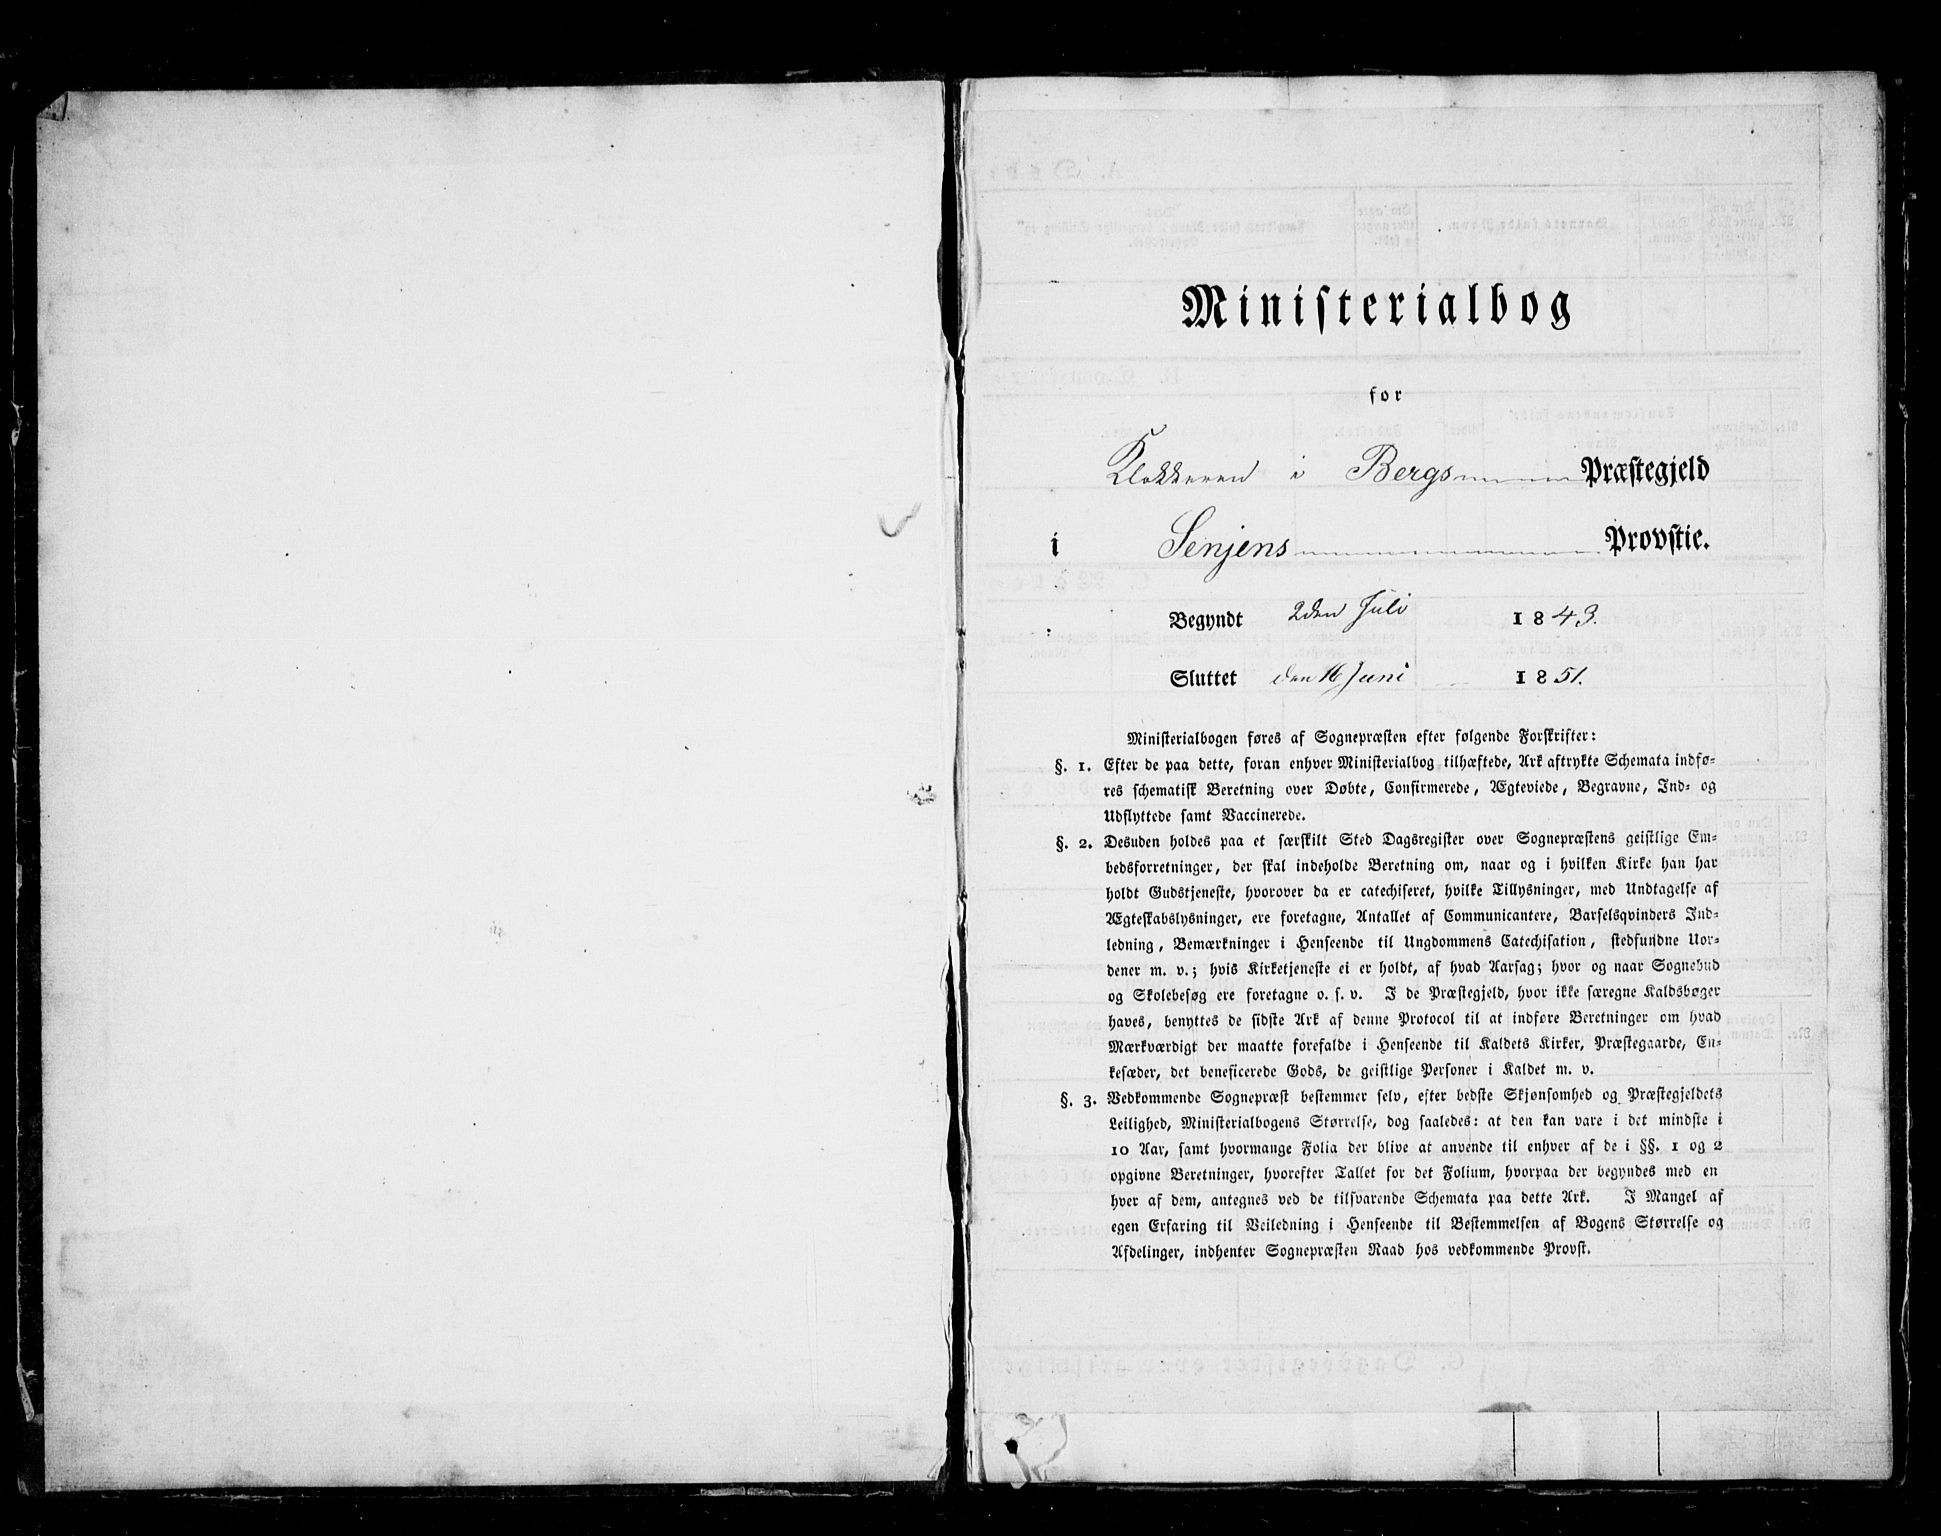 Ministerialbog
for
Klokkeren i Bergs Præstegjeld
i Senjens Provstie.
Begyndt 2den Juli 1843.
Sluttet den 16 Juni 1851.
Ministerialbogen føres af Sognepræsten efter følgende Forskrifter:
§. 1. Efter de paa dette, foran enhver Ministerialbog tilhæftede, Ark aftrykte Schemata indfø-
res schematisk Beretning over Døbte, Confirmerede, Ægteviede, Begravne, Ind- og
Udflyttede samt Vaccinerede.
§. 2. Desuden holdes paa et særskilt Sted Dagsregister over Sognepræstens geistlige Em-
bedsforretninger, der skal indeholde Beretning om, naar og i hvilken Kirke han har
holdt Gudstjeneste, hvorover da er catechiseret, hvilke Tillysninger, med Undtagelse af
Ægteskabslysninger, ere foretagne, Antallet af Communicantere, Barselqvinders Ind-
ledning, Bemærkninger i Henseende til Ungdommens Catechisation, stedfundne Uor-
dener m. v.; hvis Kirketjeneste ei er holdt, af hvad Aarsag; hvor og naar Sognebud
og Skolebesøg ere foretagne o. s. v. I de Præstegjeld, hvor ikke særegne Kaldsbøger
haves, benyttes de sidste Ark af denne Protocol til at indføre Beretninger om hvad
Mærkværdigt der maatte forefalde i Henseende til Kaldets Kirker, Præstegaarde, En-
kesæder, det beneficerede Gods, de geistlige Personer i Kaldet m. v.
§. 3. Vedkommende Sognepræst bestemmer selv, efter bedste Skjønsomhed og Præstegjeldets
Leilighed, Ministerialbogens Størrelse, dog saaledes: at den kan vare i det mindste i
10 Aar, samt hvormange Folia der blive at anvende til enhver af de i §§. 1 og 2
opgivne Beretninger, hvorefter Tallet for det Folium, hvorpaa der begyndes med en
hver af dem, antegnes ved de tilsvarende Schemata paa dette Ark. I Mangel af
egen Erfaring til Veiledning i Henseende til Bestemmelsen af Bogens Størrelse og
Afdelinger, indhenter Sognepræsten Raad hos vedkommende Provst.